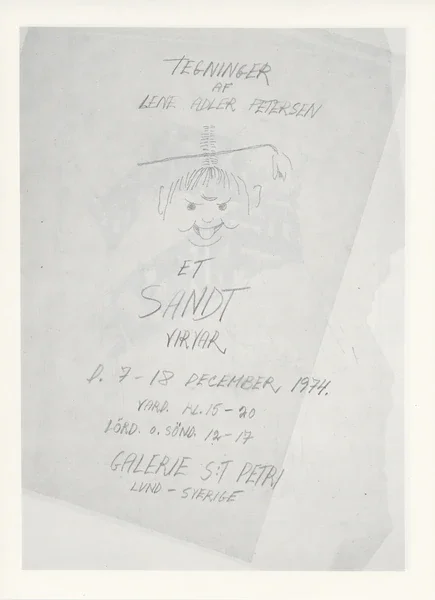 TEGNINGER
AF
LENE ADLER PETERSEN
ET
SANDT
VIRVAR
D. 7-18 DECEMBER, 1974.
VARD. KL. 15-20
LÖRD. O. SÖND. 12-17
GALERIE S:T PETRI
LUND-SVERIGE